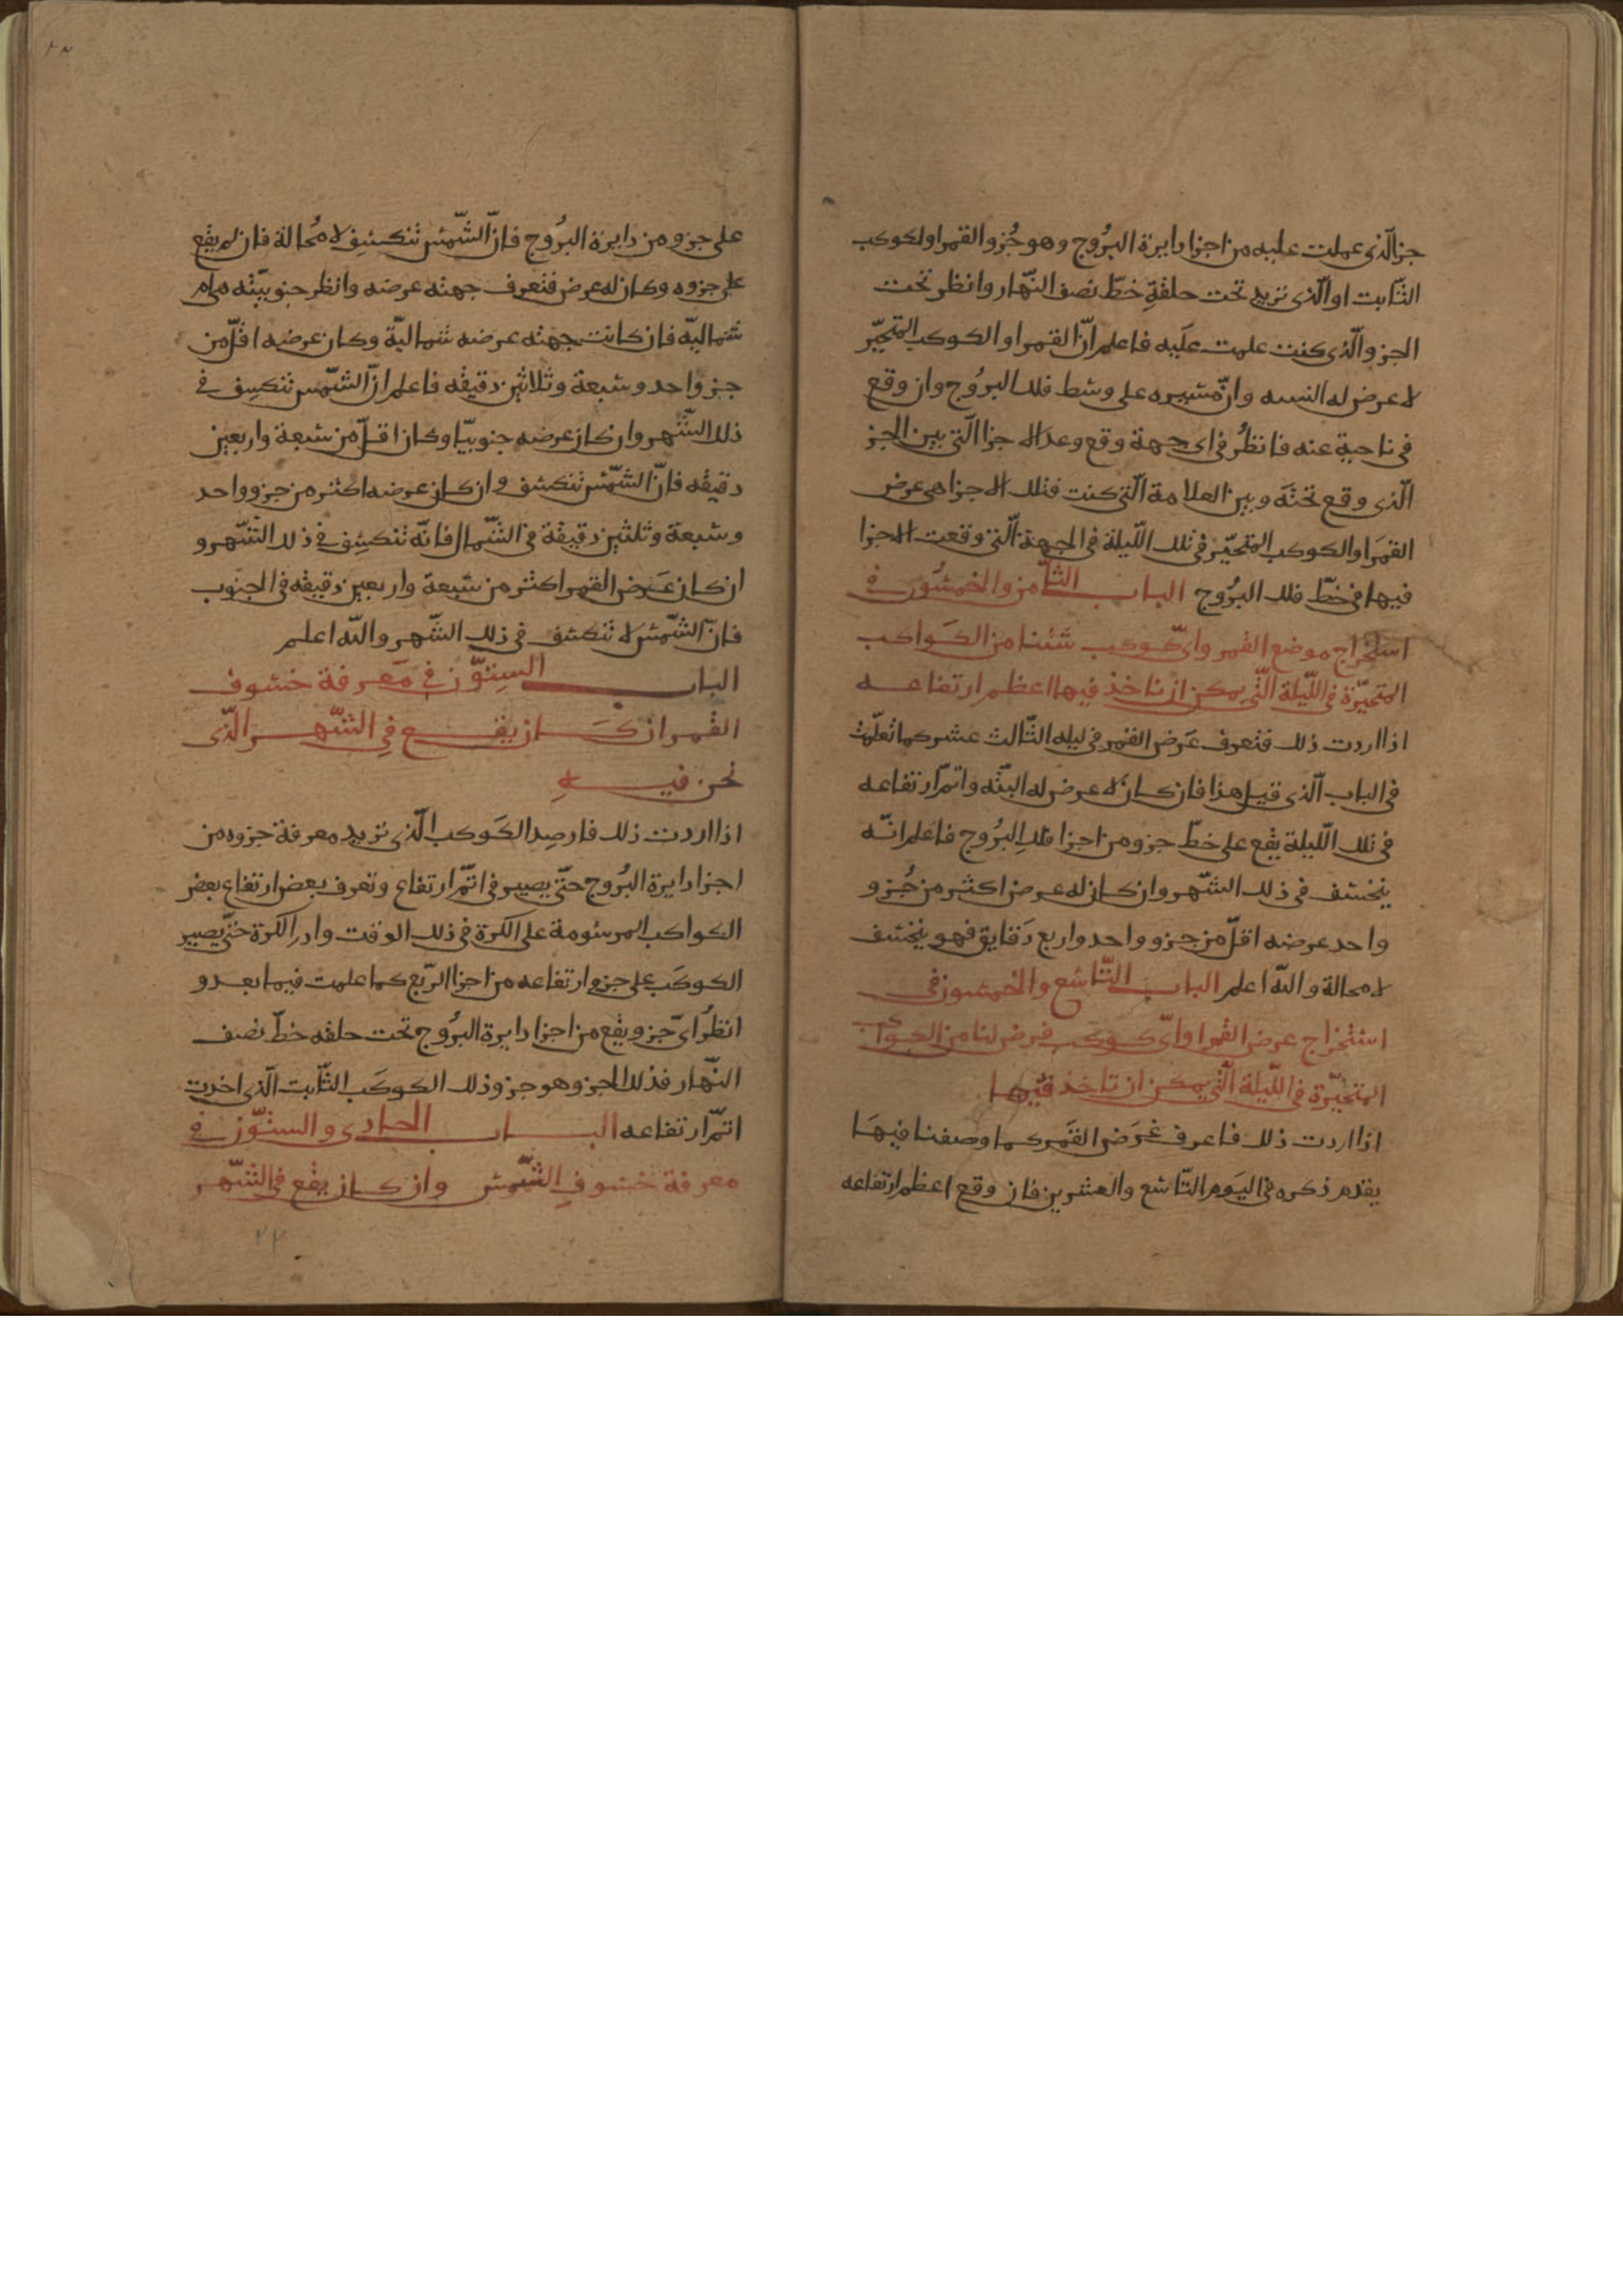 جز الّذى عملت عليه من اجزا دايرة البرُوج وهو جُزو القمر او لكوكب
الثّابت او الّذى تريد تحت حلقةِ خطّ نصف النّهار وانظر تحت
الجزو الّذى كنت علمت علَيه فاعلم انّ القمر او الكوكب المتحيّر
لا عرض له البته وانّ مسيره على وسط فلك البرُوج وان وقع
فى ناحية عنه فانظُر فى اى جهة وقع وعد الاجزا الّتى بين الجز
الّذى وقع تحتَه وبين العلامة الّتى كنت فتلك الاجزا هى عرض
القمَر او الكوكب المتحيّر فى تلك اللّيلة فى الجهة الّتى وقعت الاجزا
فيها فى خطّ فلك البرُوج الباب الثّامن والخمسُون فى
استخراج موضع القمر واىّ كوكب شئنا من الكَواكب
المتحيّرة فى اللّيلة الّتى يمكن ان ناخذ فيها اعظم ارتفاعه
اذا اردت ذلك فتعرف عَرض القمر فى ليله الثّالث عشر كما تعلّمت
فى الباب الّذى قبل هذا فان كان لا عرض له البتّه واتمّ ارتفاعه
فى تلك اللّيلة يقع على خطّ جزو من اجزا فلكِ البرُوج فاعلم انّه
ينخسف فى ذلك الشّهر وان كان له عرض اكثر من جُزو
واحد عرضه اقلّ من جزو واحد واربع دَقايق فهو ينخسف
لا محالة والله اعلم الباب التّاسع والخمسون فى
استخراج عرض القمر او اىّ كوكب فرض لنا من الكواكب
المتحيّرة فى اللّيلة الّتى يمكن ان تاخذ فيها
اذا اردت ذلك فاعرف عَرَض القمَر كما وصفنا فيهَا
يقدم ذكره فى اليَوم التّاسع والعشرين فان وقع اعظم ارتفاعه
على جزو من دايرة البرُوج فانّ الشّمس تنكسِف لا مُحالة فان لم يقع
على جزوه وكان له عرض فتعرف جهته عرضه وانظر جنوبيّته هى ام
شماليّه فان كانت جهته عرضه شماليّة وكان عرضه اقلّ من
جز واحد وسبعة وثلاثين دقيقه فاعلم انّ الشّمس تنكسِف فى
ذلك الشّهر وان كان عرضه جنوبيّا وكان اقلّ من سبعة واربعين
دقيقه فانّ الشّمس تنكسف وان كان عرضه اكثر من جزو واحد
وسبعة وثلثين دقيقة فى الشّمال فانّه تنكسِف فى ذلك الشّهر و
ان كان عَرض القمر اكثر من سَبعة واربعين دقيقه فى الجنوب
فانّ الشّمس لا تنكسف فى ذلك الشّهر والله اعلم
الباب السِتوّن فى مَعرفة خسوف
القمر ان كَان يقع فى الشّهر الّذى
نحن فيهِ
اذا اردت ذلك فارصِد الكَوكب الّذى تريد معرفة جزوه من
اجزا دايرة البرُوج حتّى يصير فى اتمّ ارتفاع وتعرف بعض ارتفاع بعض
الكواكب المرسُومة على الكرة فى ذلك الوقت وادرِ الكرة حتّى يصير
الكوكَب على جزو ارتفاعه من اجزا الرّبع كما علمت فيما بعد و
انظُر اىّ جزو يقع من اجزا دايرة البرُوج تحت حلقه خطّ نصف
النّهار فذلك الجزو هو جزو ذلك الكوكَب الثّابت الّذى اخذت
اتمّ ارتفاعه الباب الحادى والستوّن فى
معرفة خسوفِ الشّمس وان كان يقع فى الشّهر